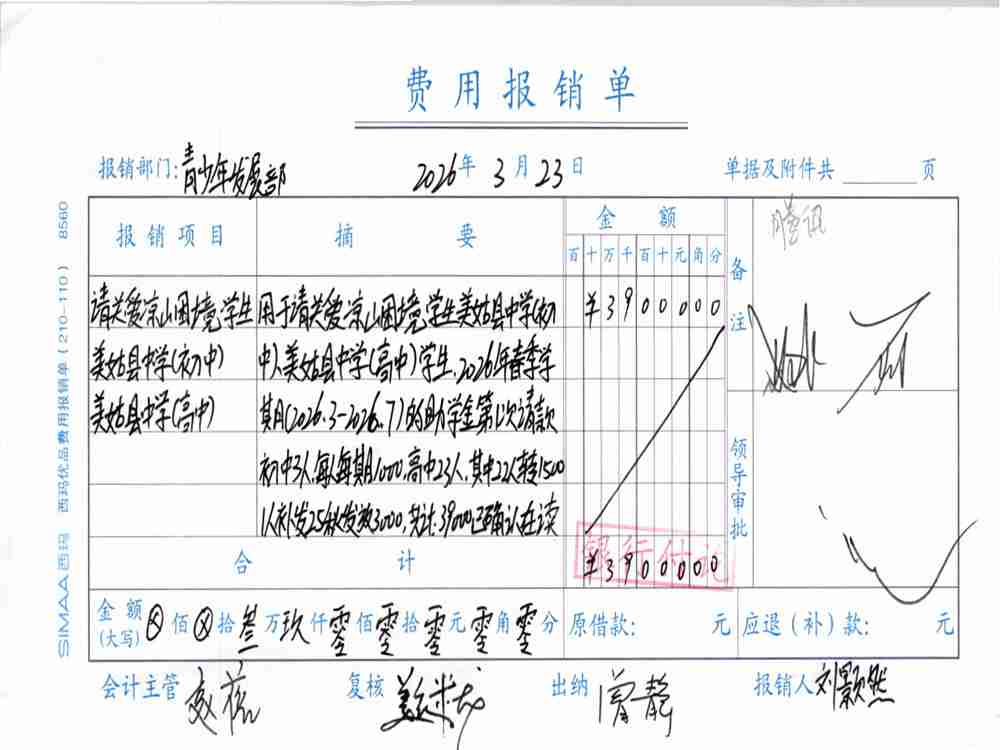 费用报销单
报销部门:青少年发展部 2026年3月23日 单据及附件共 页
报销项目 摘要 金额 备注
百十万千百十元角分
腾讯
请关爱凉山困境学生 用于请关爱凉山困境学生美姑县中学(初 ¥3900000
美姑县中学(初中) 中)、美姑县中学(高中)学生,2026年春季学
美姑县中学(高中) 期(2026.3-2026.7)的助学金第1次请款
初中3人,每人每期1000,高中23人,其中22人转1500
1人补发25秋发放3000,共计:39000已确认在读
领导审批
合计 ¥3900000
银行付讫
金额(大写)ⓧ佰ⓧ拾叁万玖仟零佰零拾零元零角零分 原借款: 元 应退(补)款: 元
会计主管 复核 出纳 曾静 报销人 刘颢然
SIMAA西玛 西玛优品费用报销单(210-110) 8560